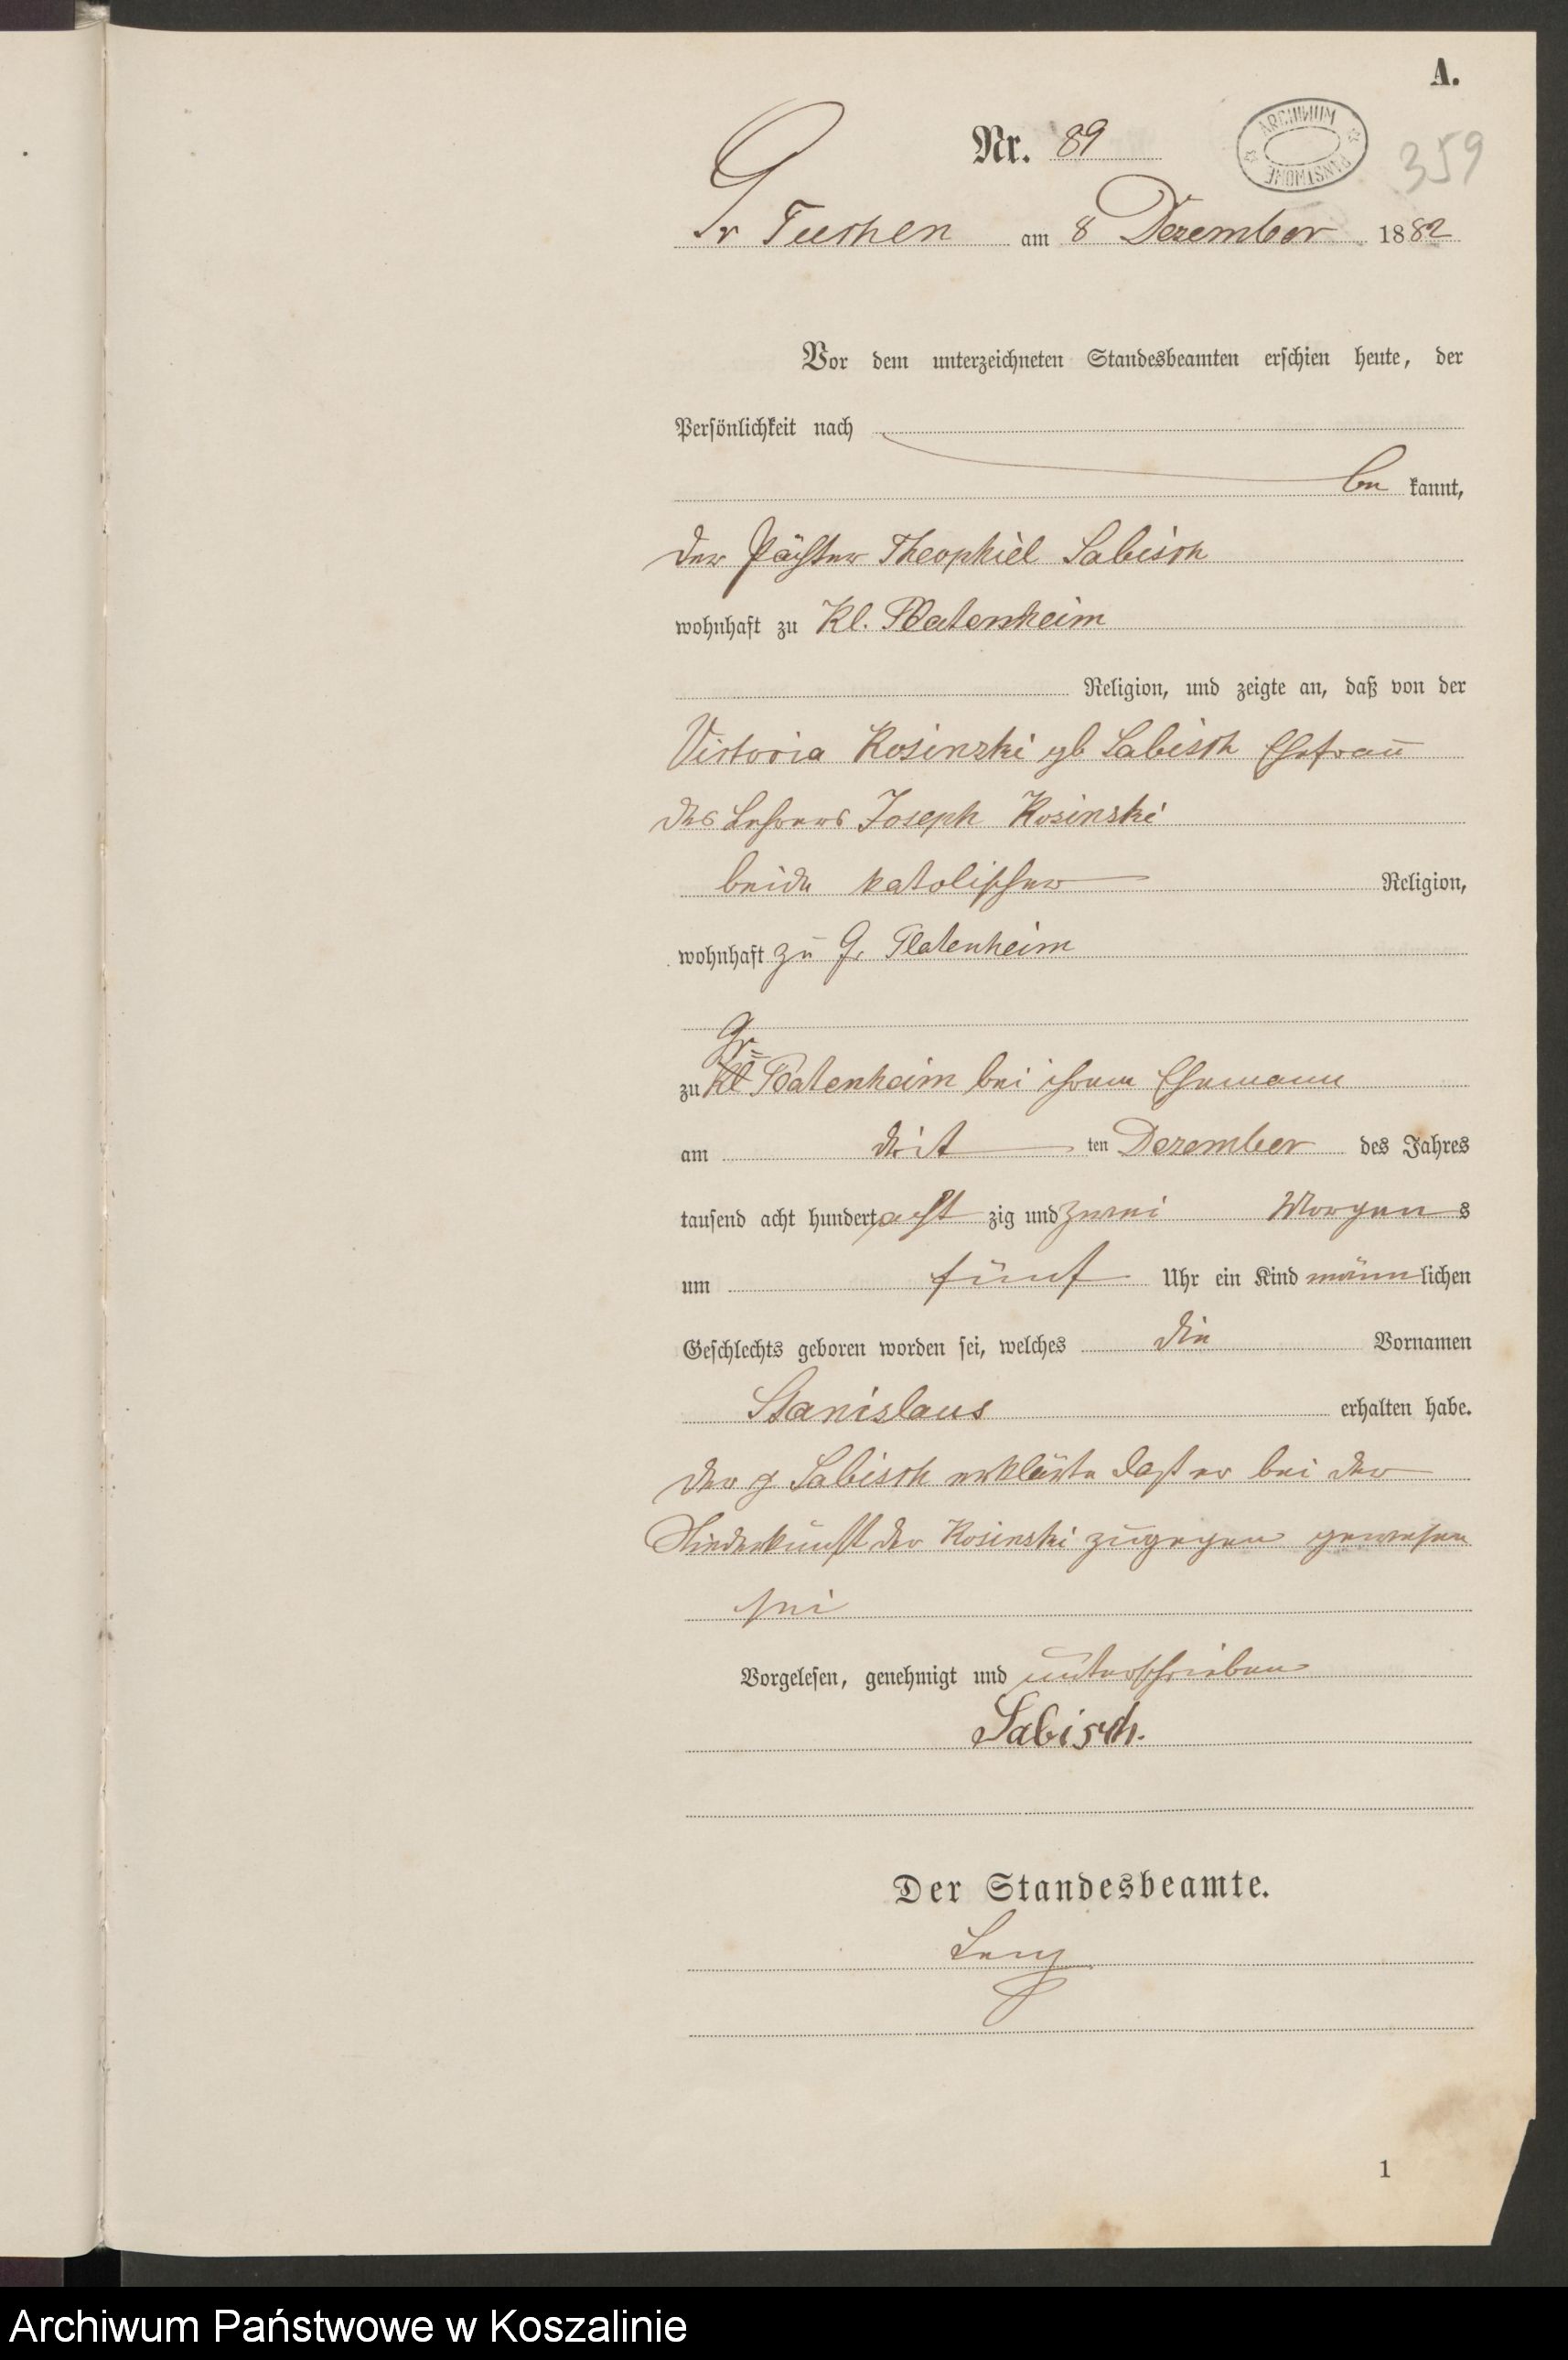 A.
Nr. 89
ARCHIWUM PAŃSTWOWE
359
Gr Tuchen am 8 Dezember 1882
Vor dem unterzeichneten Standesbeamten erschien heute, der
Persönlichkeit nach
be kannt,
der Pächter Theophiel Sabisch
wohnhaft zu Kl. Platenheim
Religion, und zeigte an, daß von der
Victoria Kosinski gb Sabisch Ehefrau
des Lehrers Joseph Kosinski
beide katolischer Religion,
wohnhaft zu Gr Platenheim
Gr
zu Kl Platenheim bei ihrem Ehemann
am drit ten Dezember des Jahres
tausend acht hundert acht zig und zwei Morgens
um fünf Uhr ein Kind männlichen
Geschlechts geboren worden sei, welches die Vornamen
Stanislaus erhalten habe.
Der Sabisch erklärte daß er bei der
Niederkunft der Kosinski zugegen gewesen
sei
Vorgelesen, genehmigt und unterschrieben
Sabisch.
Der Standesbeamte.
1
Archiwum Państwowe w Koszalinie